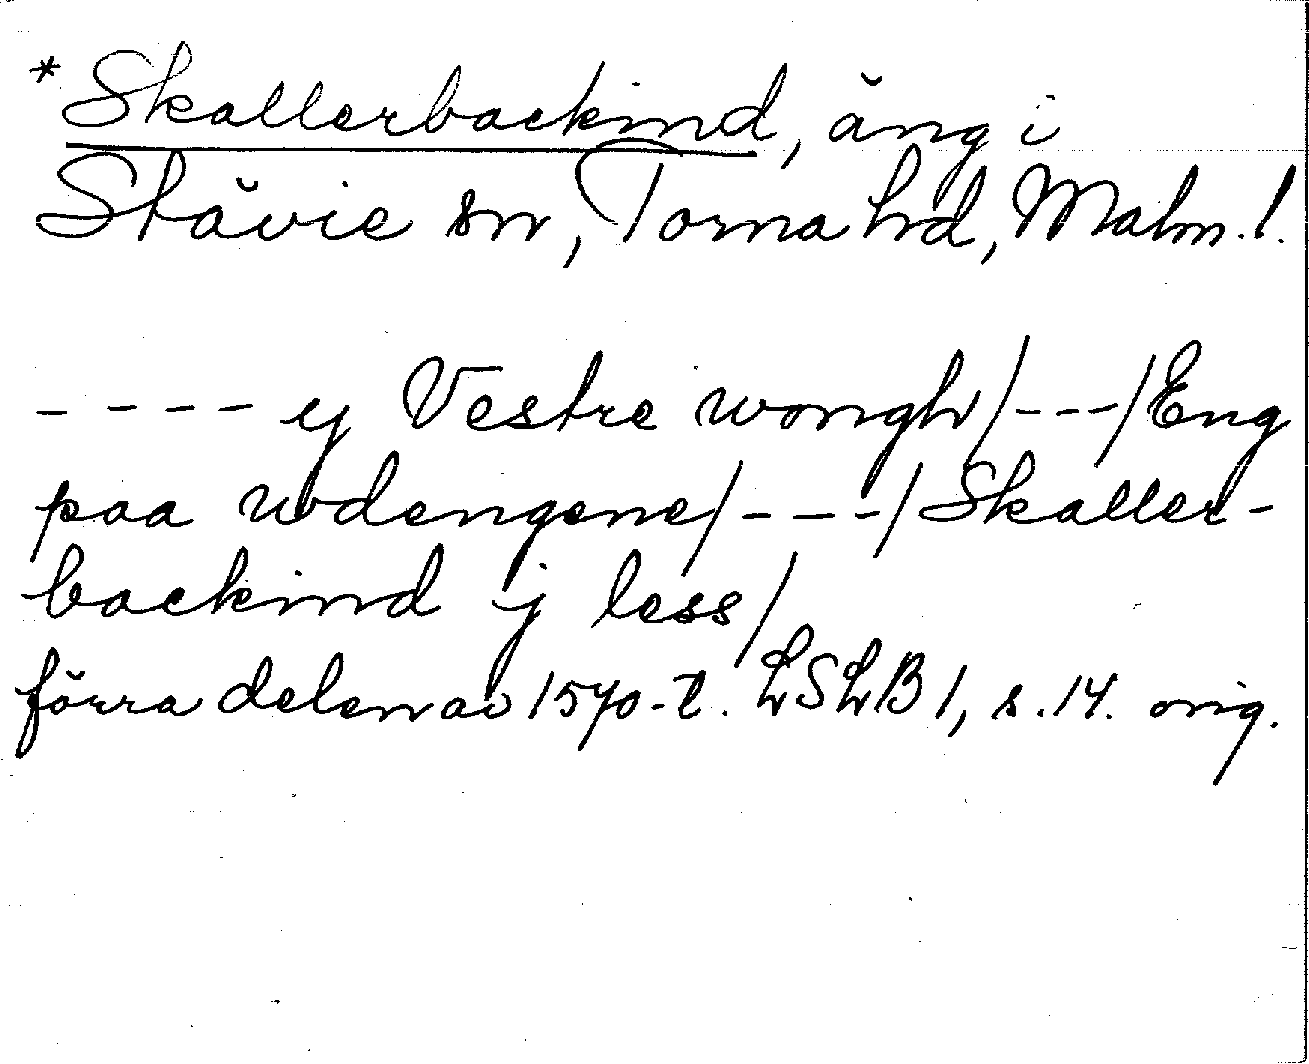 *Skallerbackind, äng i
Stävie sn, Torna hd, Malm. l.
- - - - ej Vestre wongh/---/Eng
paa wdengene/---/Skaller-
backind j less/
förra delen av 1570-t. LSLB 1, s. 14. orig.